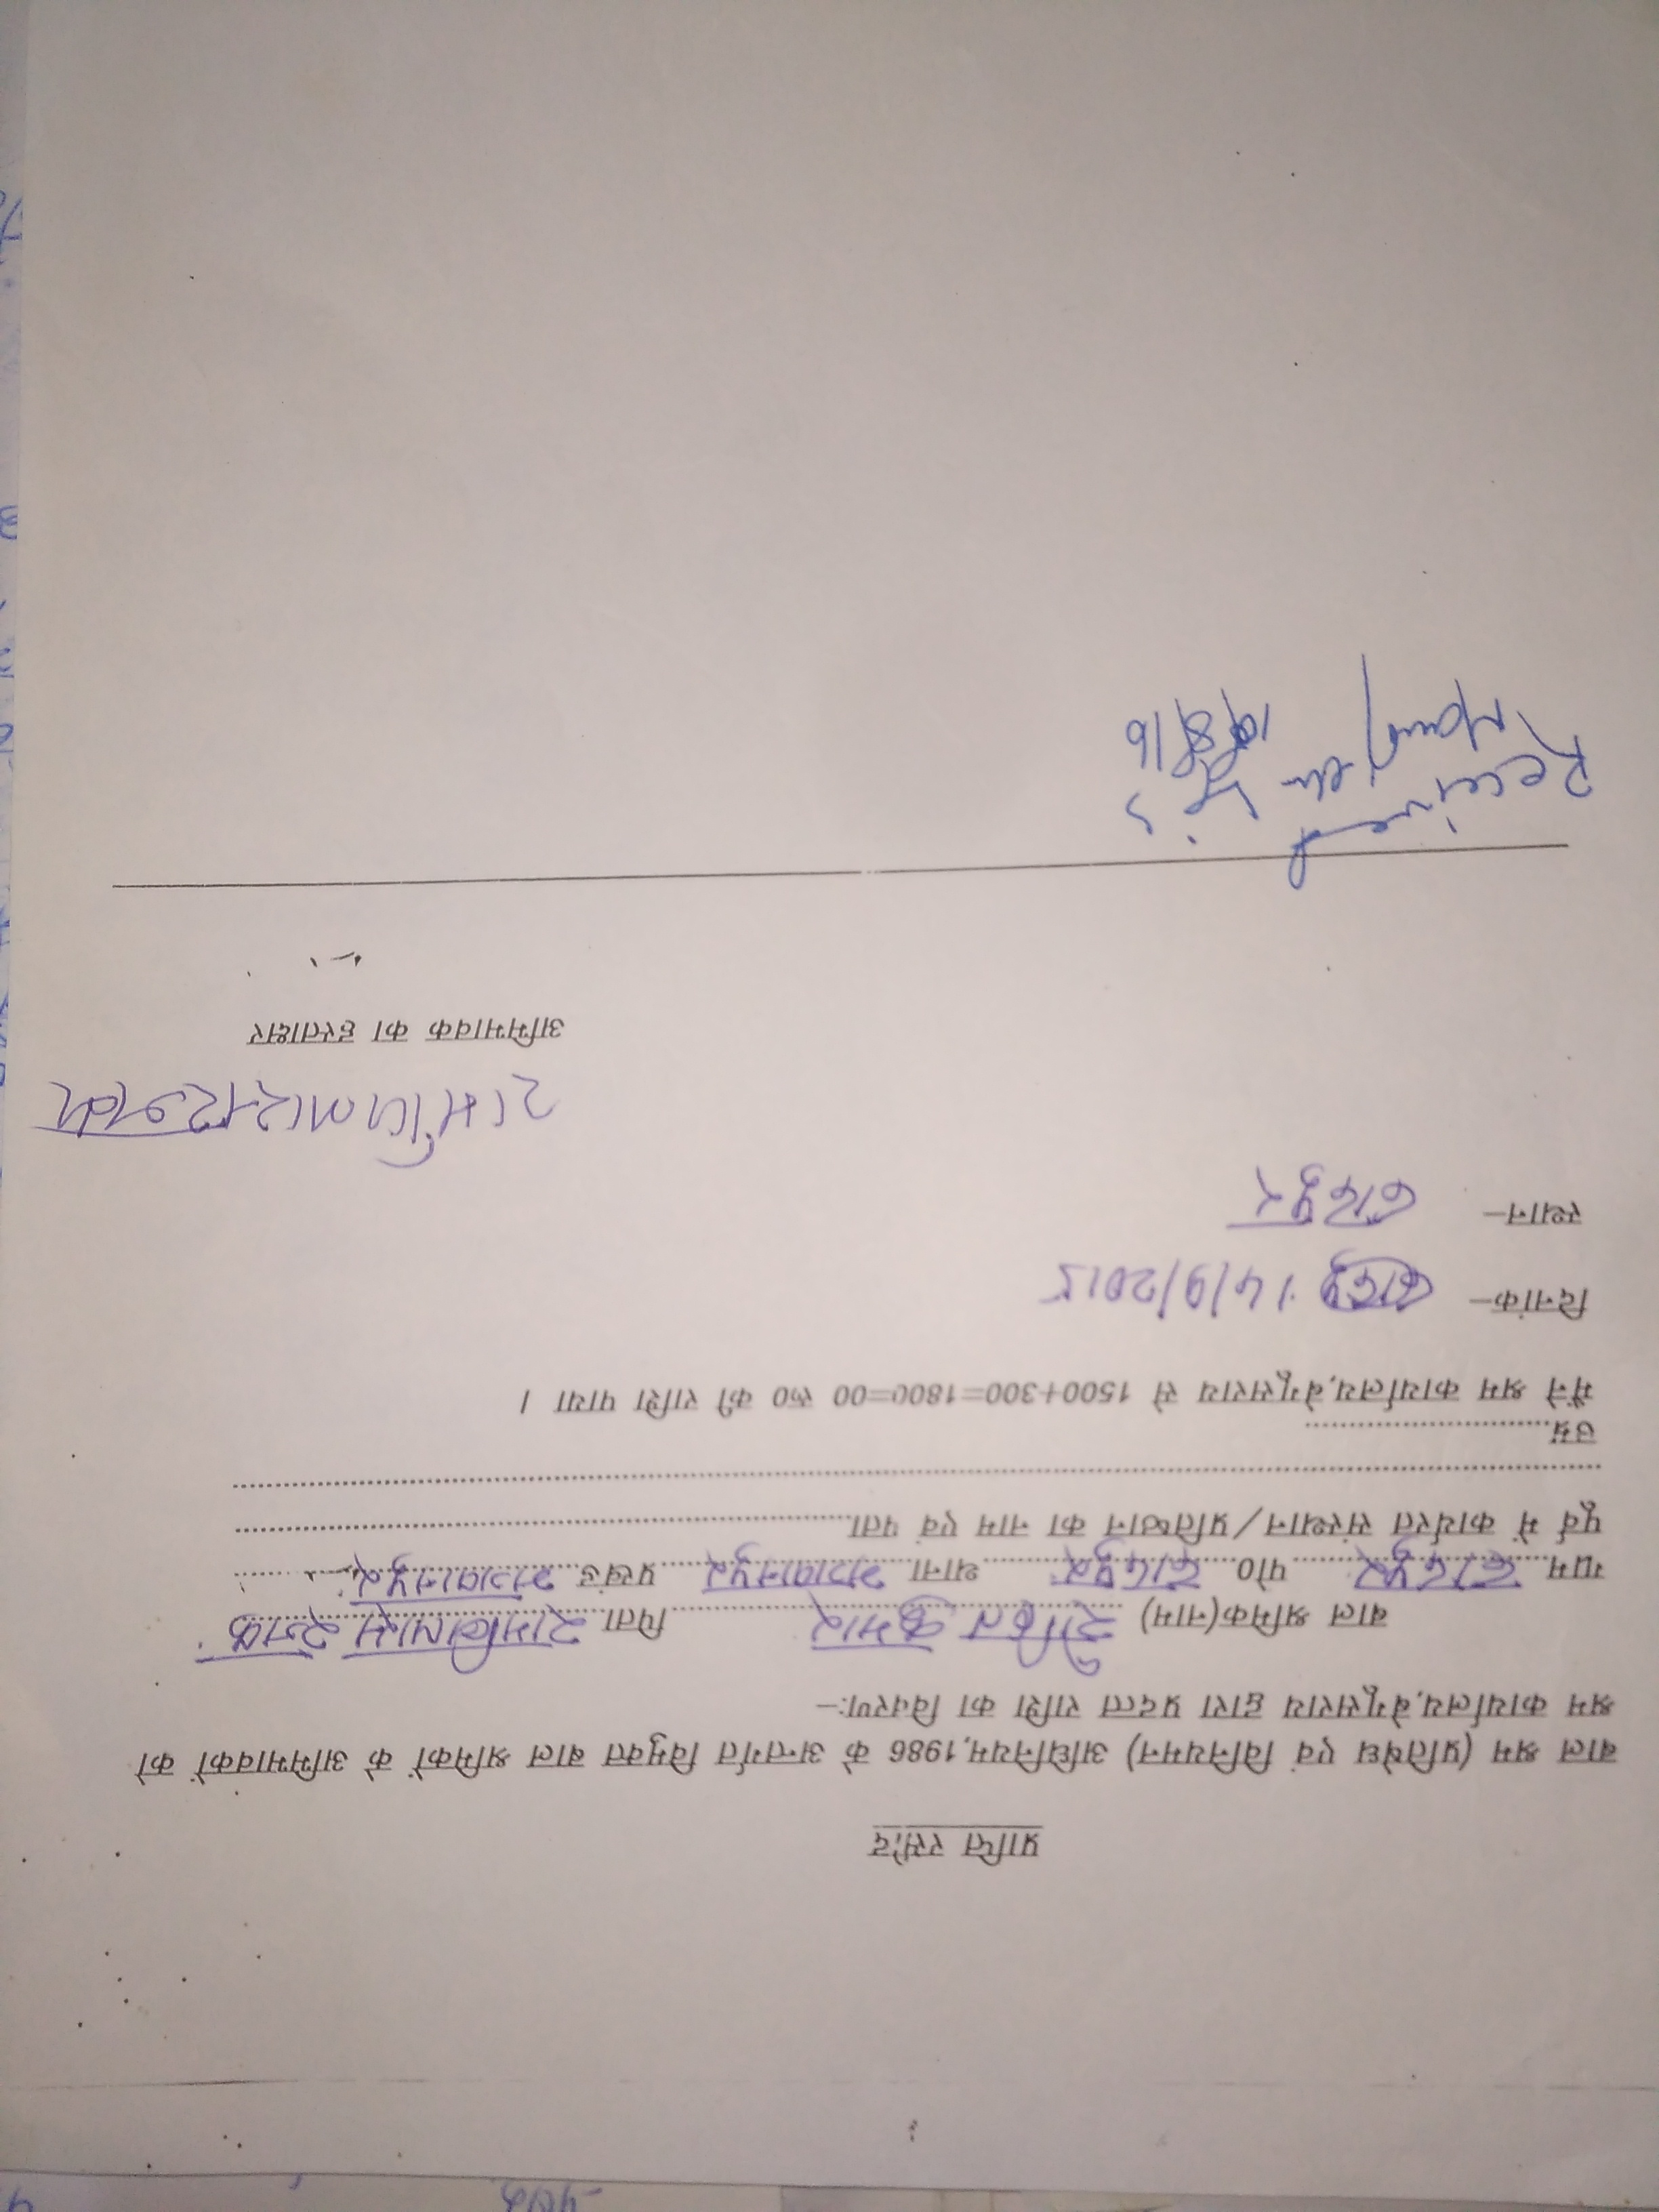 प्राप्ति रसीद
बाल श्रम (प्रतिषेध एवं विनियमन) अधिनियम,1986 के अन्तर्गत विमुक्त बाल श्रमिकों के अभिभावकों को
श्रम कार्यालय,बेगूसराय द्वारा प्रदत्त राशि का विवरणः–
बाल श्रमिक(नाम) रोहित कुमार पिता रामबिलास रजक
ग्राम दादपुर पो0 दादपुर थाना भगवानपुर प्रखंड भगवानपुर
पूर्व में कार्यरत संस्थान/प्रतिष्ठान का नाम एवं पता
उम्र
मैंने श्रम कार्यालय,बेगूसराय से 1500+300=1800=00 रू0 की राशि पाया ।
दिनांक– 14/9/2015
स्थान– दादपुर
रामविलास रजक
अभिभावक का हस्ताक्षर
Received